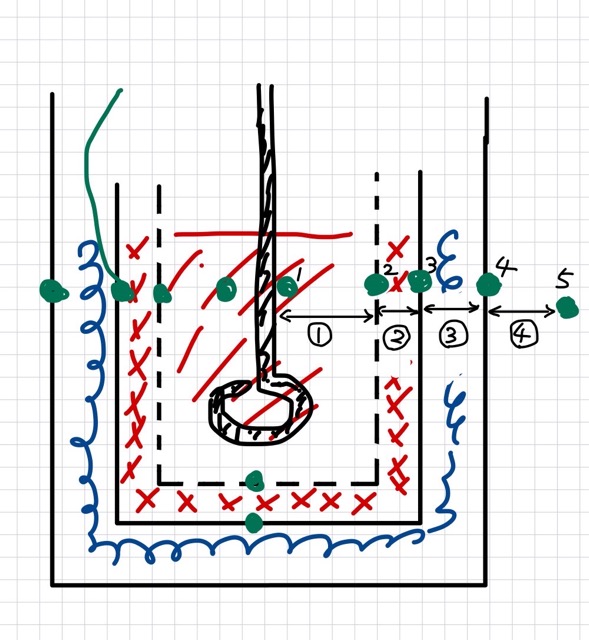 1
2
3
4
5
①
②
③
④